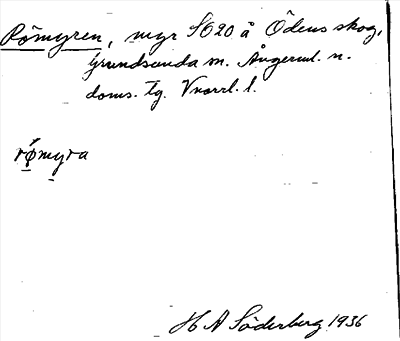 Römyren, myr SO20 å Ödens skog,
Grundsunda sn. Ångerml. n.
doms. tg. Vnorrl. l.
rǿmyra
H A Söderberg 1936